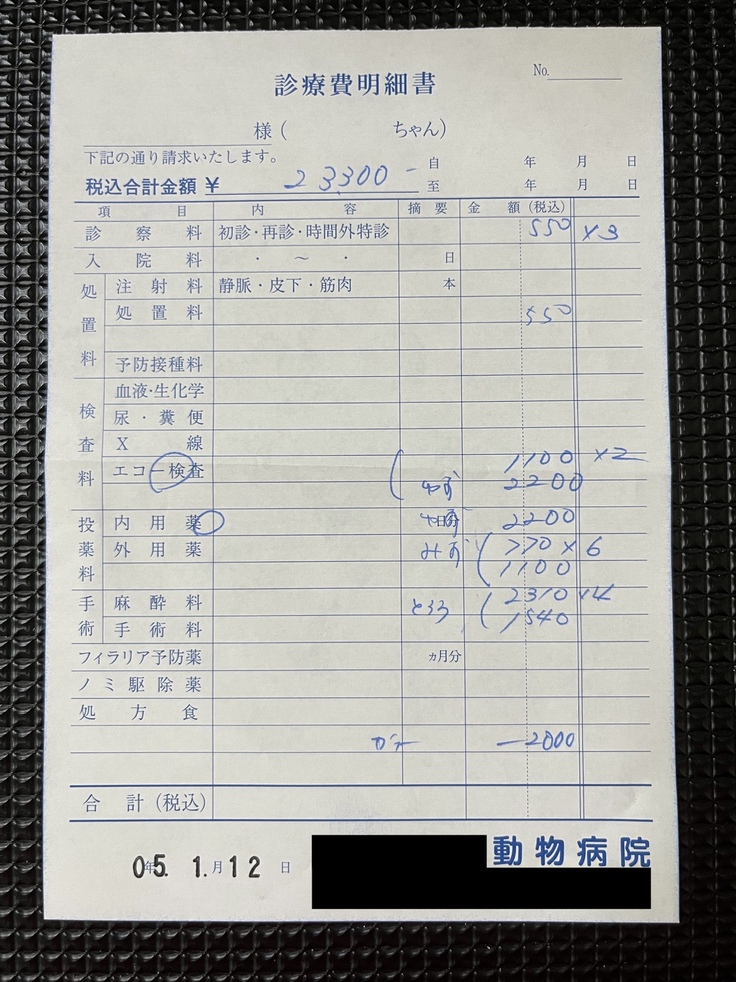 No.
診療費明細書
様( ちゃん)
下記の通り請求いたします。
自 年 月 日
税込合計金額 ¥ 23300-
至 年 月 日
項 目 内 容 摘 要 金 額 (税込)
診 察 料 初診・再診・時間外特診 550 ×3
入 院 料 ・ ～ ・ 日
処置料
注 射 料 静脈・皮下・筋肉 本
処 置 料 550
予防接種料
検査料
血液・生化学
尿・糞便
X 線
エコー検査 1100 ×2
ゆず 2200
投薬料
内 用 薬 日分 2200
外 用 薬 みお 770 × 6
1100
手術
麻 酔 料 2310 ×4
手 術 料 1540
フィラリア予防薬 ヵ月分
ノ ミ 駆 除 薬
処 方 食
-2000
合 計 (税込)
05年 1.月12 日
動物病院